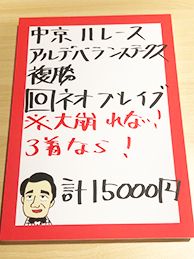 中京11レース
アルデバランステクス
複勝
10ネオブレイブ
※大崩れない!
3着なら!
計15000円